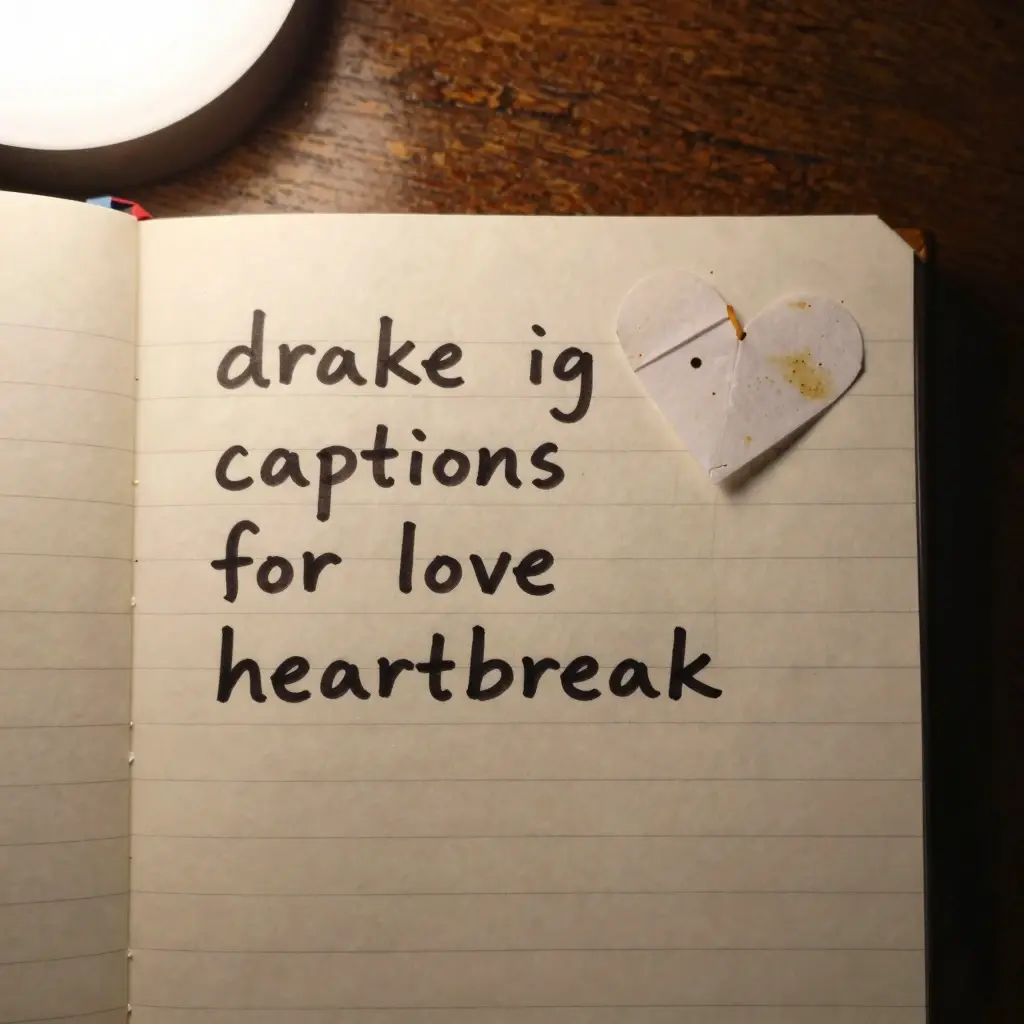 drake ig
captions
for love
heartbreak